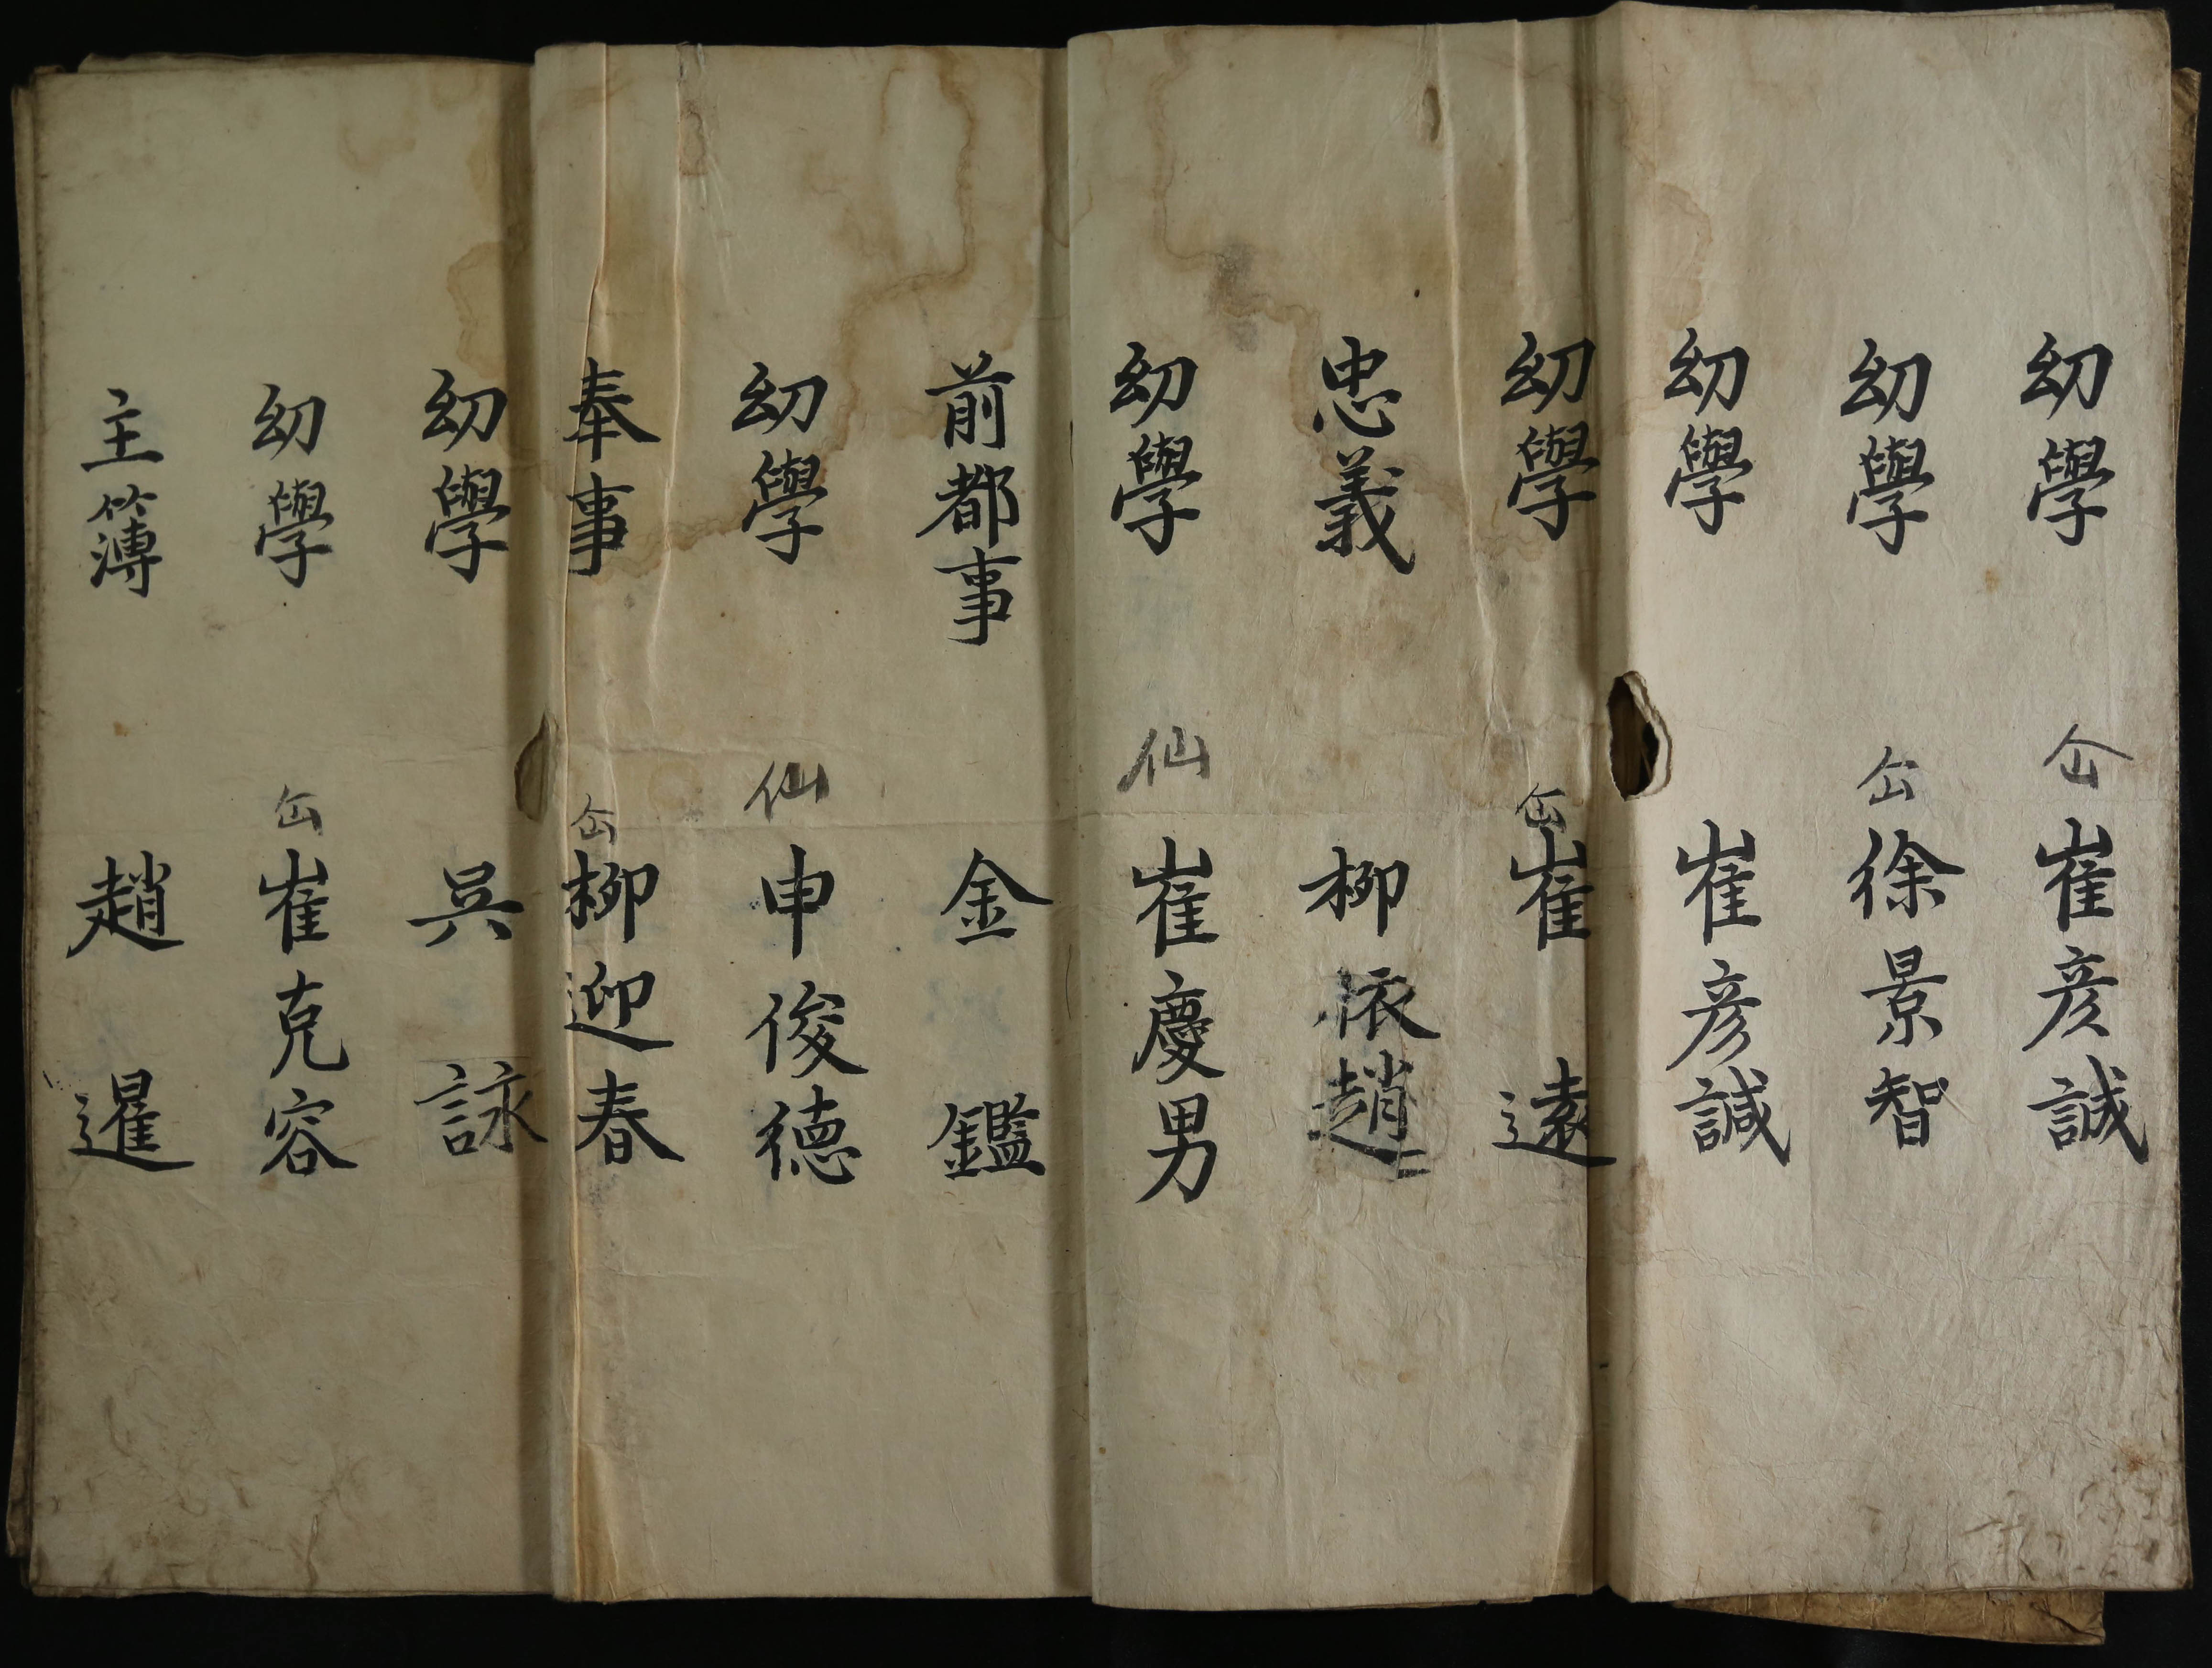 幼學 仚 崔彦誠
幼學 仚 徐景智
幼學 崔彦諴
幼學 仚 崔遠
忠義 柳依趙
幼學 仙 崔慶男
前都事 金鑑
幼學 仙 申俊德
奉事 仚 柳迎春
幼學 吳詠
幼學 仚 崔克容
主簿 趙暹